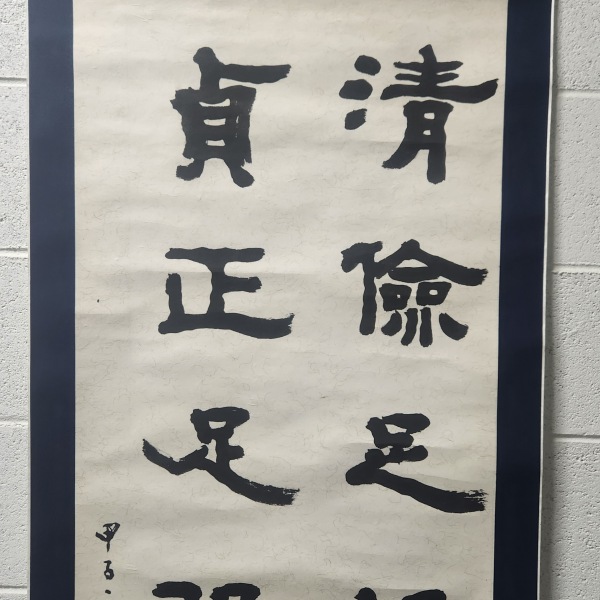 清儉足
貞正足
甲